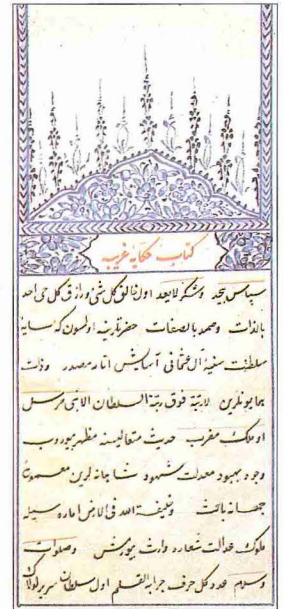 كتاب حكاية غريبه
سپاس بيحد وشكر لا يعد اول خالق كل شئ ورازق كل حى احد
بالذات وصمد بالصفات حضرتلرينه اولسون كه سايه
سلطنت سنيۀ آل عثمانى آسايش آثار مصدر وذات
همايونلرين لا رتبة فوق رتبة السلطان الا نبى مرسل
او ملك مقرب حديث متعاليسنه مظهر بيوروب
وجود بهبود معدلت شهود شاهانه لرين معمورئ
جهانه باعث وخليفة الله فى الارض اماره سيله
ملوك عدالت شعاره وارث بيورمش وصلوات
وسلام عدد كل حرف جرا به القلم اول سلطان سرير لولاك